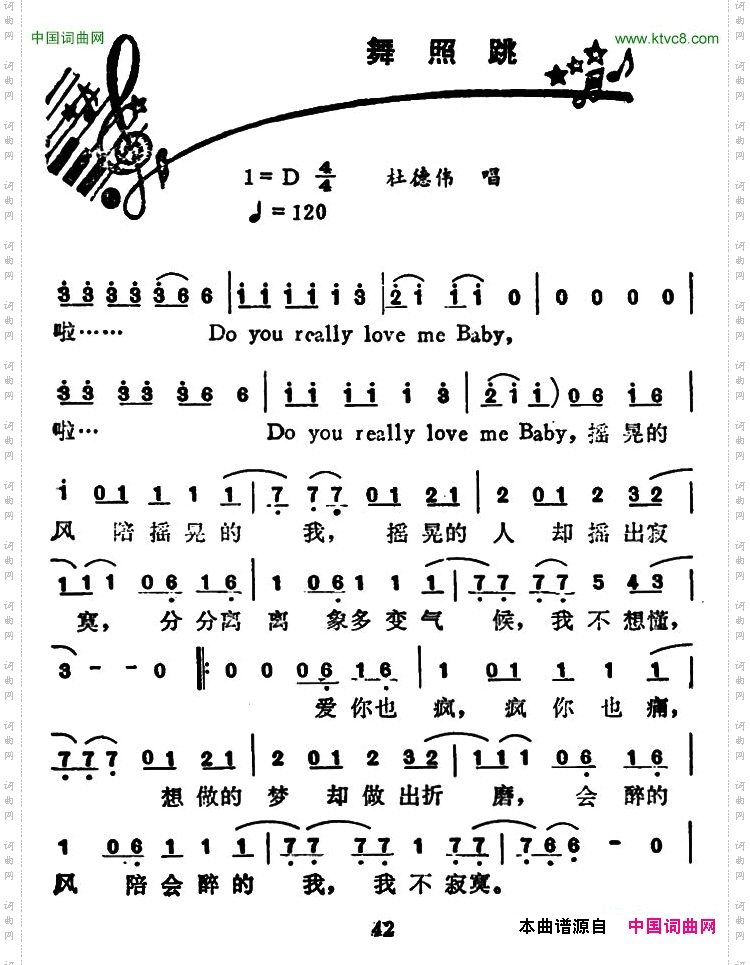 中国词曲网
www.ktvc8.com
舞照跳
1=D 4/4 杜德伟 唱
♩=120
3 3 3 3 3 6 6 | 1 1 1 1 1 3 | 2 1 1 1 0 | 0 0 0 0 |
啦…… Do you really love me Baby,
3 3 3 3 3 6 6 | 1 1 1 1 1 3 | 2 1 1 ) 0 6 1 6 |
啦… Do you really love me Baby, 摇晃的
1 0 1 1 1 1 | 7 7 7 0 1 2 1 | 2 0 1 2 3 2 |
风 陪摇晃的 我, 摇晃的人 却摇出寂
1 1 1 0 6 1 6 | 1 0 6 1 1 1 | 7 7 7 7 5 4 3 |
寞, 分分离离 象多变气 候,我不想懂,
3 - - 0 ‖: 0 0 0 6 1 6 | 1 0 1 1 1 1 |
爱你也疯, 疯你也痛,
7 7 7 0 1 2 1 | 2 0 1 2 3 2 | 1 1 1 0 6 1 6 |
想做的梦 却做出折 磨, 会醉的
1 0 6 1 1 1 | 7 7 7 7 1 7 7 | 7 6 6 - 0 |
风 陪会醉的 我, 我不寂寞。
42
本曲谱源自 中国词曲网